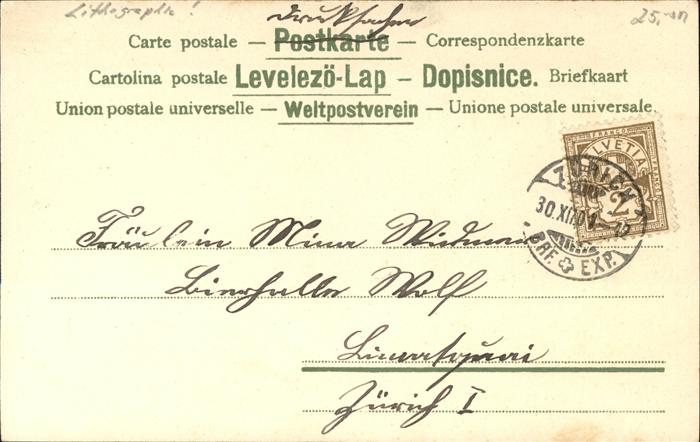 Lithographie! 25,-
Drucksachen
Carte postale — Postkarte — Correspondenzkarte
Cartolina postale Levelezö-Lap — Dopisnice. Briefkaart
Union postale universelle — Weltpostverein — Unione postale universale.
FRANCO
HELVETIA
2
ZÜRICH 1
30.XII.
BRF. EXP.
Fräulein Mina
Bierhalle Wolf
Limmatquai
Zürich I